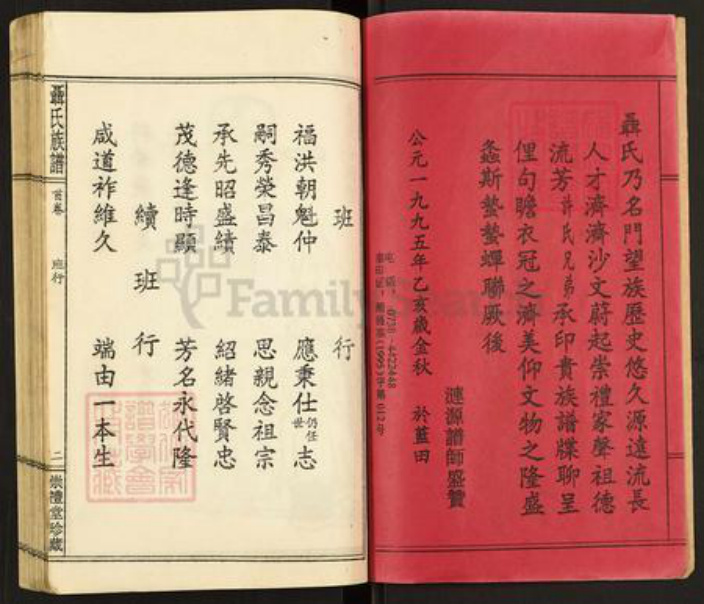 聶氏乃名門望族歷史悠久源遠流長
人才濟濟沙文蔚起崇禮家聲祖德
流芳許氏兄弟承印貴族譜牒聊呈
俚句瞻衣冠之濟美仰文物之隆盛
螽斯蟄蟄蟬聯厥後
漣源譜師盛贊
公元一九九五年乙亥歲金秋 於藍田
班行
福洪朝魁仲 應秉仕仍任世志
嗣秀榮昌泰 思親念祖宗
承先昭盛績 紹緒啓賢忠
茂德逢時顯 芳名永代隆
續班行
咸道祚維久 端由一本生
聶氏族譜 首卷 班行 二 崇禮堂珍藏
FamilySearch